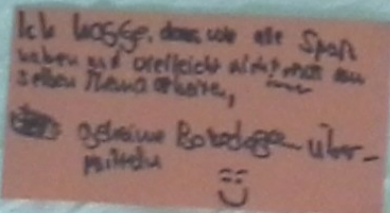 Ich hoffe, dass wir alle Spaß
haben und vielleicht nicht nur am
selben Thema arbeiten,
geheime Botschaften über-
mitteln